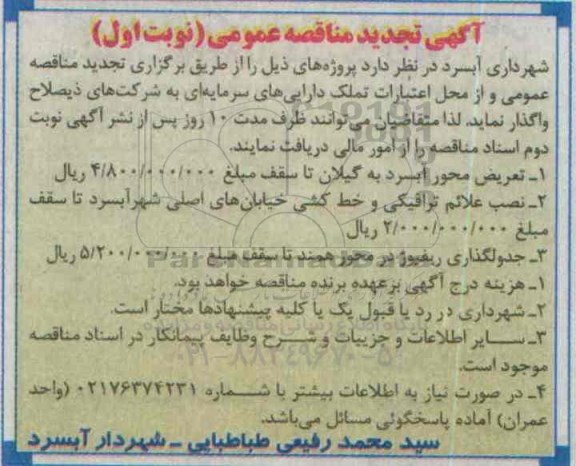 آگهی تجدید مناقصه عمومی (نوبت اول)
شهرداری آبسرد در نظر دارد پروژه‌های ذیل را از طریق برگزاری تجدید مناقصه
عمومی و از محل اعتبارات تملک دارایی‌های سرمایه‌ای به شرکت‌های ذیصلاح
واگذار نماید. لذا متقاضیان می‌توانند ظرف مدت ۱۰ روز پس از نشر آگهی نوبت
دوم اسناد مناقصه را از امور مالی دریافت نمایند.
۱ـ تعریض محور آبسرد به گیلان تا سقف مبلغ ۴/۸۰۰/۰۰۰/۰۰۰ ریال
۲ـ نصب علائم ترافیکی و خط کشی خیابان‌های اصلی شهرآبسرد تا سقف
مبلغ ۲/۰۰۰/۰۰۰/۰۰۰ ریال
۳ـ جدولگذاری ریفیوژ در محور همند تا سقف مبلغ ۵/۲۰۰/۰۰۰/۰۰۰ ریال
۱ـ هزینه درج آگهی برعهده برنده مناقصه خواهد بود.
۲ـ شهرداری در رد یا قبول یک یا کلیه پیشنهادها مختار است.
۳ـ سایر اطلاعات و جزییات و شرح وظایف پیمانکار در اسناد مناقصه
موجود است.
۴ـ در صورت نیاز به اطلاعات بیشتر با شماره ۰۲۱۷۶۳۷۴۲۳۱ (واحد
عمران) آماده پاسخگوئی مسائل می‌باشد.
سید محمد رفیعی طباطبایی ـ شهردار آبسرد